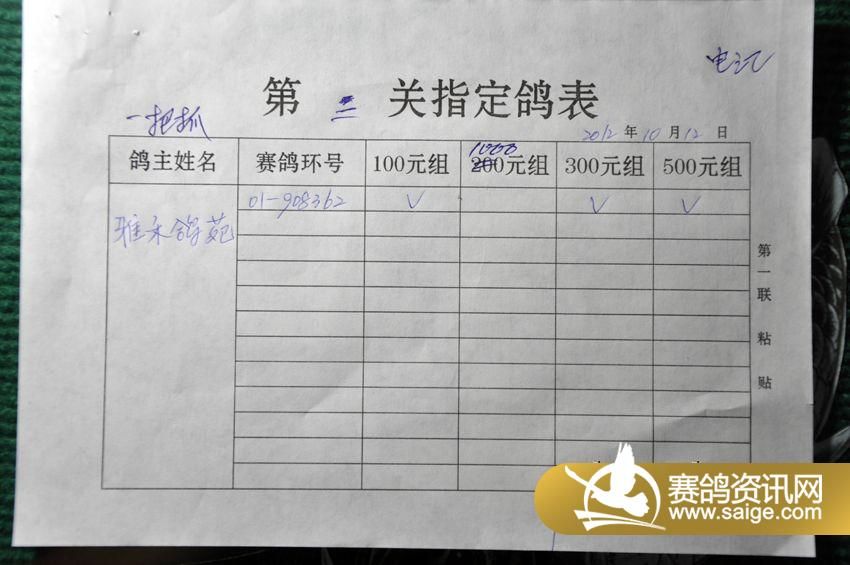 电汇
第 三 关指定鸽表
一把抓
2012 年 10 月 12 日
鸽主姓名 赛鸽环号 100元组 1000元组 300元组 500元组
01-908362 V V V
雅禾鸽苑
第一联 粘贴
赛鸽资讯网
www.saige.com